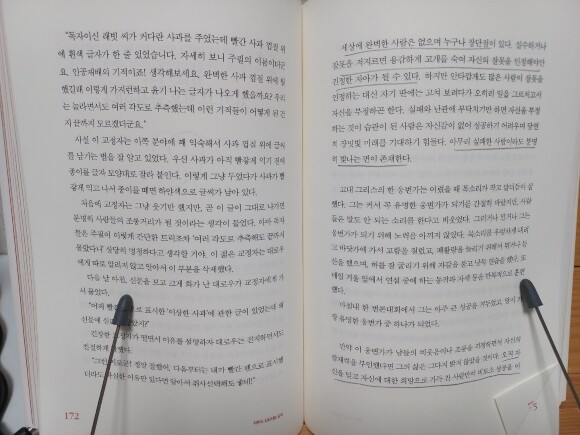 "독자이신 래빗 씨가 커다란 사과를 주었는데 빨간 사과 껍질 위
에 흰색 글자가 한 줄 있었습니다. 자세히 보니 주필의 이름이더군
요. 인공재배의 기적이죠! 생각해보세요. 완벽한 사과 껍질 위에
했길래 이렇게 가지런하고 윤기 나는 글자가 나오게 했을까요? 우리
는 놀라면서도 여러 각도로 추측했는데 이런 기적들이 어떻게 된 건
지 끝까지 모르겠더군요."
사실 이 교정자는 이쪽 분야에 꽤 익숙해서 사과 껍질 위에 글씨
를 남기는 법을 잘 알고 있었다. 우선 사과가 아직 빨갛게 익기 전에
종이를 글자 모양대로 잘라 붙인다. 이렇게 그냥 두었다가 사과가 빨
갛게 익고 나서 종이를 떼면 하얀색으로 글씨가 남아 있다.
처음에 교정자는 그냥 웃기만 했지만, 곧 이 글이 그대로 나가면
분명히 사람들의 조롱거리가 될 것이라는 생각이 들었다. 아마 독자
들은 주필이 이렇게 간단한 트릭조차 '여러 각도로 추측해도 끝까지
몰랐다니' 상당히 멍청하다고 생각할 거야. 이 젊은 교정자는 대로우
에게 따로 알리지 않고 알아서 이 부분을 삭제했다.
다음 날 아침, 신문을 보고 크게 화가 난 대로우가 교정자에게 가
서 물었다.
표시한 '이상한 사과'에 관한 글이 있었는데 왜
이유를 설명하자 대로우는 진지하면서도
다음부터는 내가 빨간 펜으로 표시했
더라도 확실한 이유만 있다면 알아서 취사선택해도 좋네!"
172
세상에 완벽한 사람은 없으며 누구나 장단점이 있다. 실수하거나
잘못을 저지르면 용감하게 고개를 숙여 자신의 잘못을 인정해야만
진정한 자아가 될 수 있다. 하지만 안타깝게도 많은 사람이 잘못을
인정하는 대신 자기 판에는 고쳐 보려다가 오히려 일을 그르치고서
자신을 부정하곤 한다. 실패와 난관에 부딪치기만 하면 자신을 부정
하는 것이 습관이 된 사람은 자신감이 없어 성공하기 어려우며 당연
히 장밋빛 미래를 기대하기 힘들다. 아무리 실패한 사람이라도 분명
히 빛나는 면이 존재한다.
고대 그리스의 한 웅변가는 어렸을 때 목소리가 작고 말더듬이 심
했다. 그는 커서 꼭 유명한 웅변가가 되기를 간절히 바랐지만, 사람
들은 말도 안 되는 소리를 한다고 비웃었다. 그러거나 말거나 그는
웅변가가 되기 위해 노력을 아끼지 않았다. 목소리를 우렁차게 내려
고 바닷가에 가서 고함을 질렀고, 폐활량을 늘리기 위해서 뛰거나 등
산을 했으며, 혀를 잘 굴리기 위해 자갈을 물고 낭독 연습을 했다. 또
매일 거울 앞에서 연설 중에 하는 동작과 자세 등을 반복적으로 훈련
했다.
마침내 한 변론대회에서 그는 아주 큰 성공을 거두었고 당시 가
장 유명한 웅변가 중 하나가 되었다.
만약 이 웅변가가 남들의 비웃음이나 조롱을 걱정하면서 자신의
잠재력을 부인했다면 그의 삶은 그다지 밝지 않았을 것이다. 오직 자
신을 믿고 자신에 대한 희망으로 가득 찬 사람만이 비로소 성공을 이